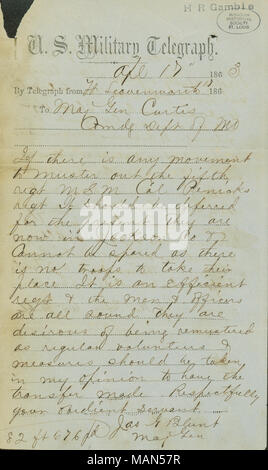 H R Gamble
MISSOURI HISTORICAL SOCIETY ST. LOUIS
U. S. Military Telegraph.
Apl 17" 1863
By Telegraph from Ft Leavenworth 186
To Maj Gen Curtis
Comdg Dept of Mo
If there is any movement
to muster out the fifth
regt M S M Col Penicks
regt It should be deferred
for the present They are
now in Jackson Co &
cannot be spared as there
is no troops to take their
place It is an efficient
regt & the men & officers
are all sound They are
desirous of being remustered
as regular volunteers &
measures should be taken
in my opinion to have the
transfer made Respectfully
your obedient servant
82 pd 676 pd Jas G Blunt
Maj Gen
alamy
alamy stock photo
MAN57R